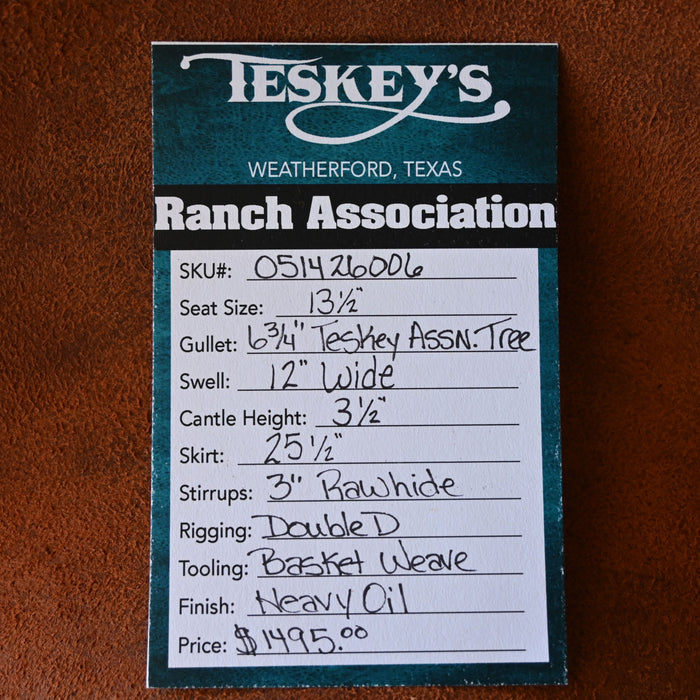 TESKEY'S
WEATHERFORD, TEXAS
Ranch Association
SKU#: 051426006
Seat Size: 13 1/2"
Gullet: 6 3/4" Teskey Assn. Tree
Swell: 12" Wide
Cantle Height: 3 1/2"
Skirt: 25 1/2"
Stirrups: 3" Rawhide
Rigging: Double D
Tooling: Basket Weave
Finish: Heavy Oil
Price: $1495.00